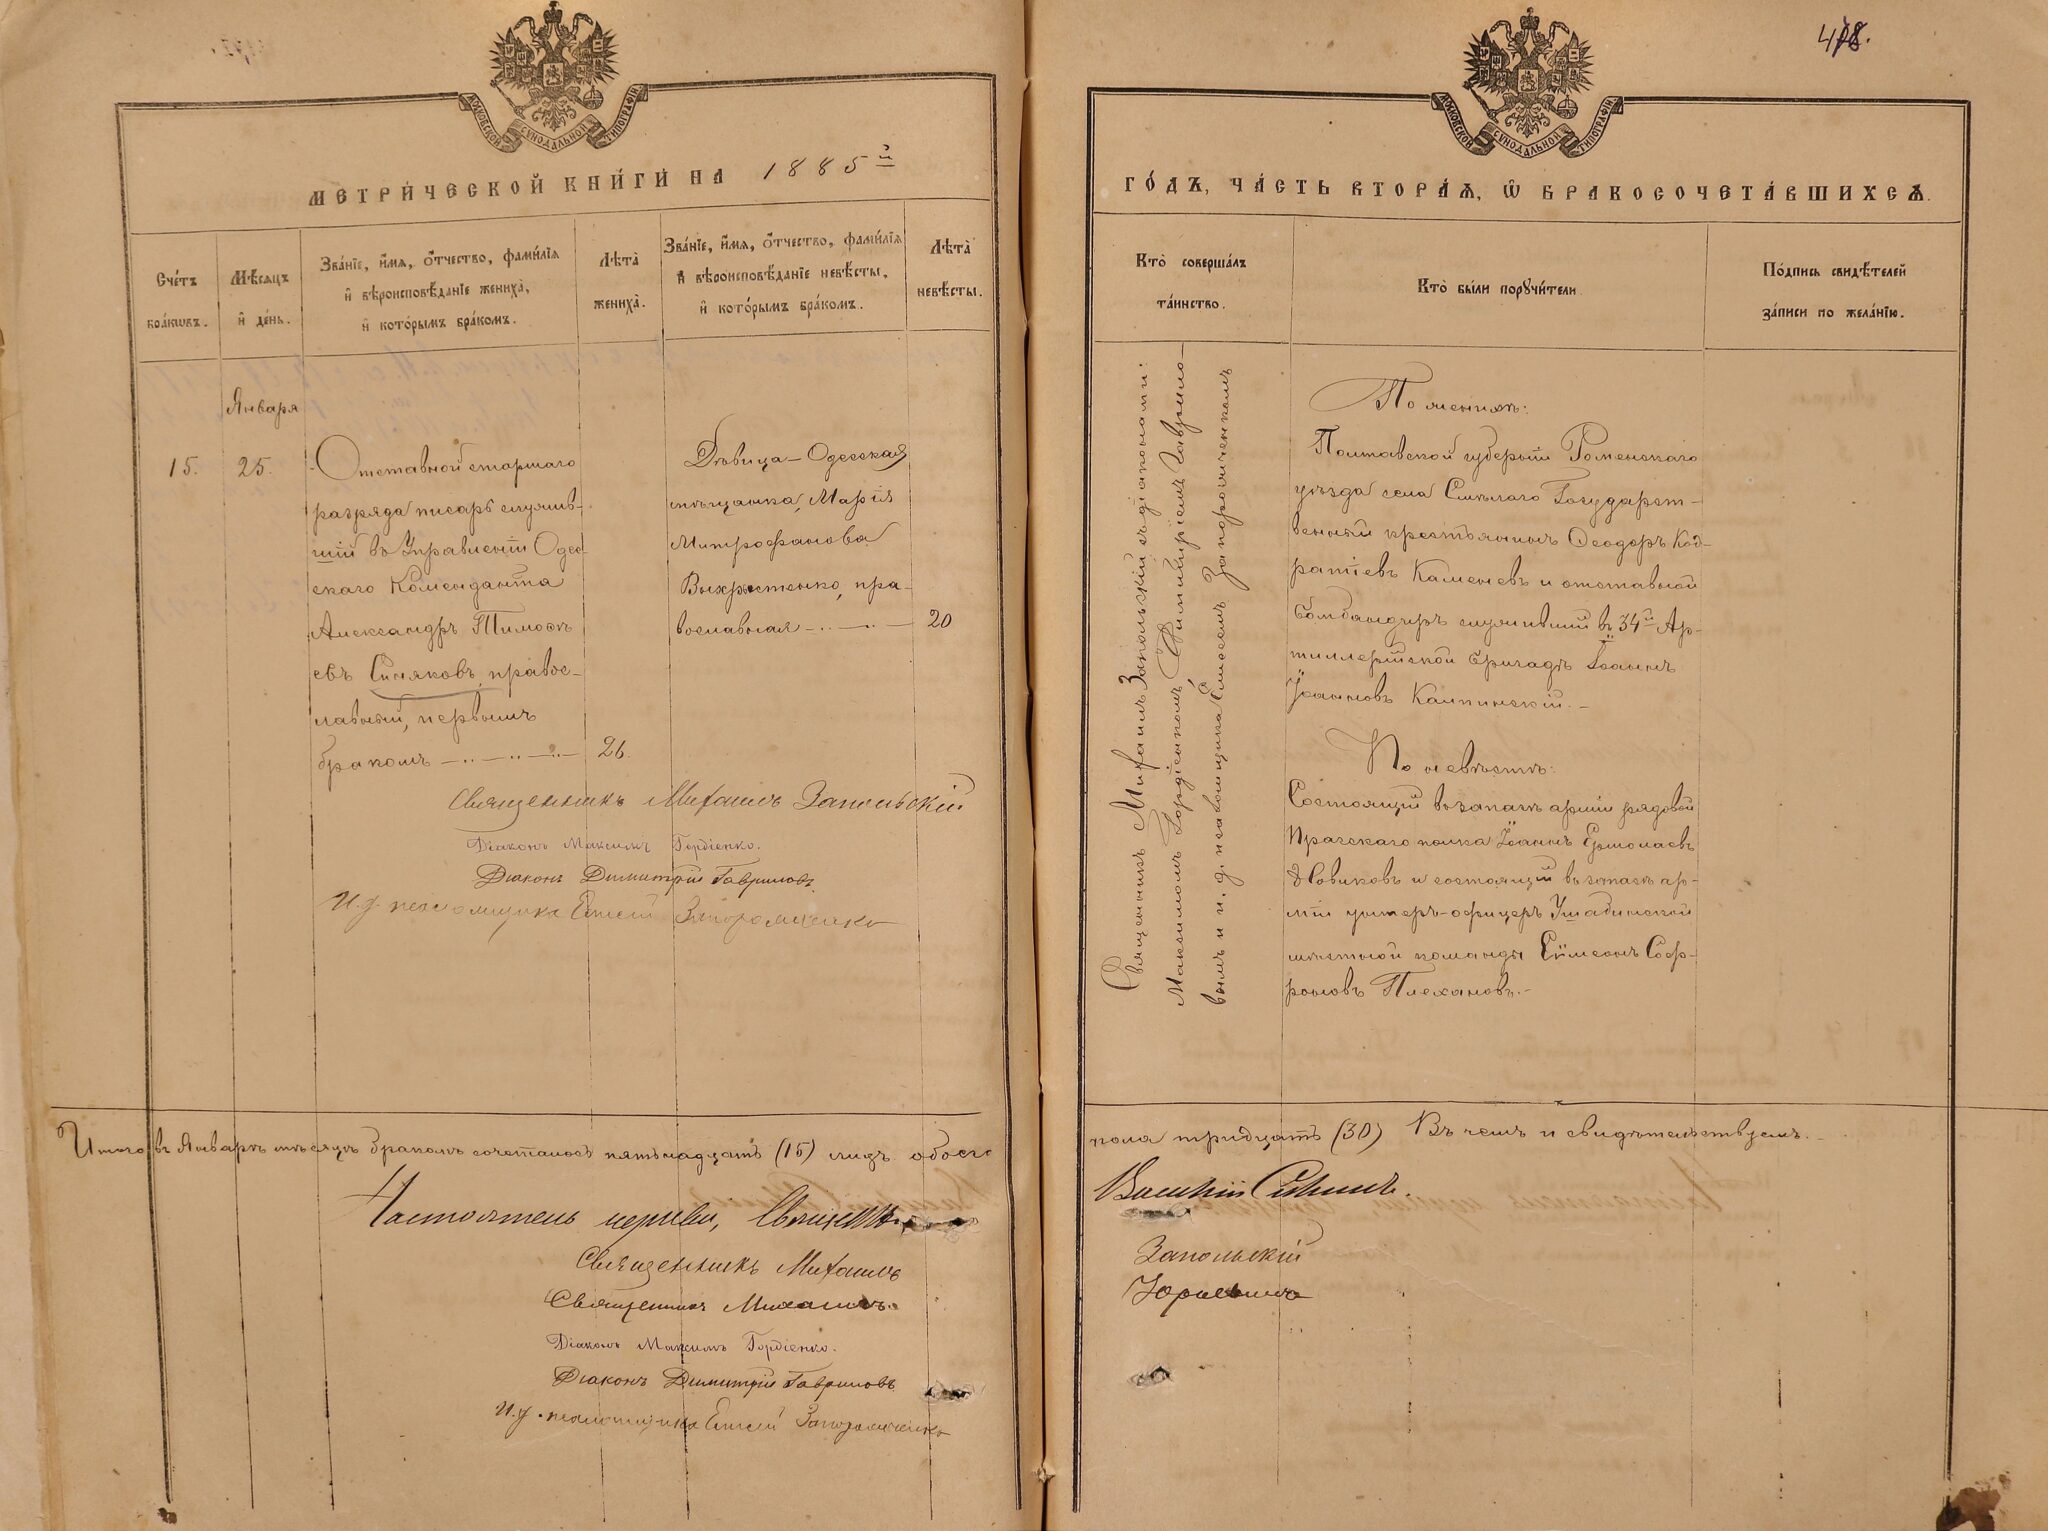 478.
МОСКОВСКОЙ СѴНОДАЛЬНОЙ ТИПОГРАФІИ
МОСКОВСКОЙ СѴНОДАЛЬНОЙ ТИПОГРАФІИ
МЕТРИ́ЧЕСКОЙ КНИ́ГИ НА 1885й
Сче́тъ бра́кωвъ.
Мѣ́сяцъ и҆ де́нь.
Зва́ніе, и҆́мя, ѻ҆́тчество, фами́лія
и҆ вѣроисповѣ́даніе жениха̀,
и҆ кото́рымъ бра́комъ.
Лѣта̀ жениха̀.
Зва́ніе, и҆́мя, ѻ҆́тчество, фами́лія
и҆ вѣроисповѣ́даніе невѣ́сты,
и҆ кото́рымъ бра́комъ.
Лѣта̀ невѣ́сты.
Января
15.
25.
Отставной старшаго
разряда писарь служив-
шій въ Управленіи Одес
скаго Коменданта
Александръ Тимоѳе
евъ Синяковъ, правос-
лавный, первымъ
бракомъ
26.
Дѣвица - Одесская
мѣщанка, Марія
Митрофанова
Выхрыстенко, пра-
вославная
20
Священникъ Михаилъ Запольскій
Діаконъ Максимъ Гордіенко.
Діаконъ Димитрій Гавриловъ.
И.д. псаломщика Елисей Запорожченко
Итого въ Январѣ мѣсяцѣ бракомъ сочеталось пятьнадцать (15) лицъ обоего
Настоятель церкви, Священни
Священникъ Михаилъ
Священникъ Михаилъ
Діаконъ Максимъ Гордіенко.
Діаконъ Димитрій Гавриловъ
И.д. псаломщика Елисей Запорожченко
ГО́ДЪ, ЧА́СТЬ ВТОРА́Я, Ѽ БРАКОСОЧЕТА́ВШИХСЯ.
Кто̀ соверша́лъ
та́инство.
Кто̀ бы́ли порꙋчи́тели.
По́дпись свидѣ́телей
за́писи по жела́нію.
Священникъ Михаилъ Запольскій съ діаконами:
Максимомъ Гордіенкомъ, Димитріемъ Гаврило-
вымъ и и. д. псаломщика Елисеемъ Запорожченкомъ
По женихѣ:
Полтавской губерніи Роменскаго
уѣзда села Смѣлаго Государст-
венный крестьянинъ Ѳеодоръ Код-
ратіевъ Каменевъ и отставной
бомбандиръ служившій въ 34й Ар-
тиллерійской бригадѣ Іоаннъ
Іоанновъ Калпинскій.-
По невѣстѣ:
Состоящій въ запасѣ арміи рядовой
Пражскаго полка Іоаннъ Ермолаевъ
Новиковъ и состоящій въ запасѣ ар-
міи унтеръ-офицеръ
мѣстной команды Сѵмеонъ Соф-
роновъ Плехановъ.-
пола тридцать (30) Въ чемъ и свидѣтельствуемъ.
Запольскій
Юркевичъ